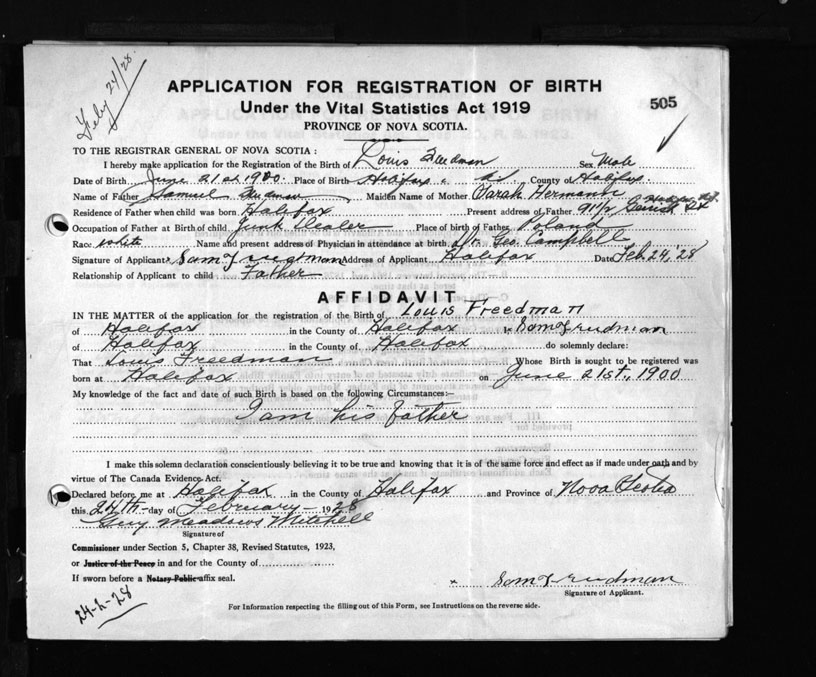 Feby 24/28.
APPLICATION FOR REGISTRATION OF BIRTH
Under the Vital Statistics Act 1919
505
PROVINCE OF NOVA SCOTIA.
TO THE REGISTRAR GENERAL OF NOVA SCOTIA:
I hereby make application for the Registration of the Birth of Louis Freedman Sex Male
Date of Birth June 21st 1900. Place of Birth Halifax County of Halifax.
Name of Father Samuel Freedman Maiden Name of Mother Sarah Hermann
Residence of Father when child was born Halifax Present address of Father
Occupation of Father at Birth of child Junk Dealer Place of birth of Father Poland
Race white Name and present address of Physician in attendance at birth Dr. Geo. Campbell
Signature of Applicant Sam Freedman Address of Applicant Halifax Date Feb 24, '28
Relationship of Applicant to child Father
AFFIDAVIT
IN THE MATTER of the application for the registration of the Birth of Louis Freedman
of Halifax in the County of Halifax I, Sam Freedman
of Halifax in the County of Halifax do solemnly declare:
That Louis Freedman Whose Birth is sought to be registered was
born at Halifax on June 21st, 1900
My knowledge of the fact and date of such Birth is based on the following Circumstances:—
I am his father
I make this solemn declaration conscientiously believing it to be true and knowing that it is of the same force and effect as if made under oath and by
virtue of The Canada Evidence Act.
Declared before me at Halifax in the County of Halifax and Province of Nova Scotia
this 24th day of February 1928
Guy Meadows Mitchell
Signature of
Commissioner under Section 5, Chapter 38, Revised Statutes, 1923,
or Justice of the Peace in and for the County of
If sworn before a Notary Public affix seal.
x Sam Freedman
Signature of Applicant.
24-2-28
For Information respecting the filling out of this Form, see Instructions on the reverse side.